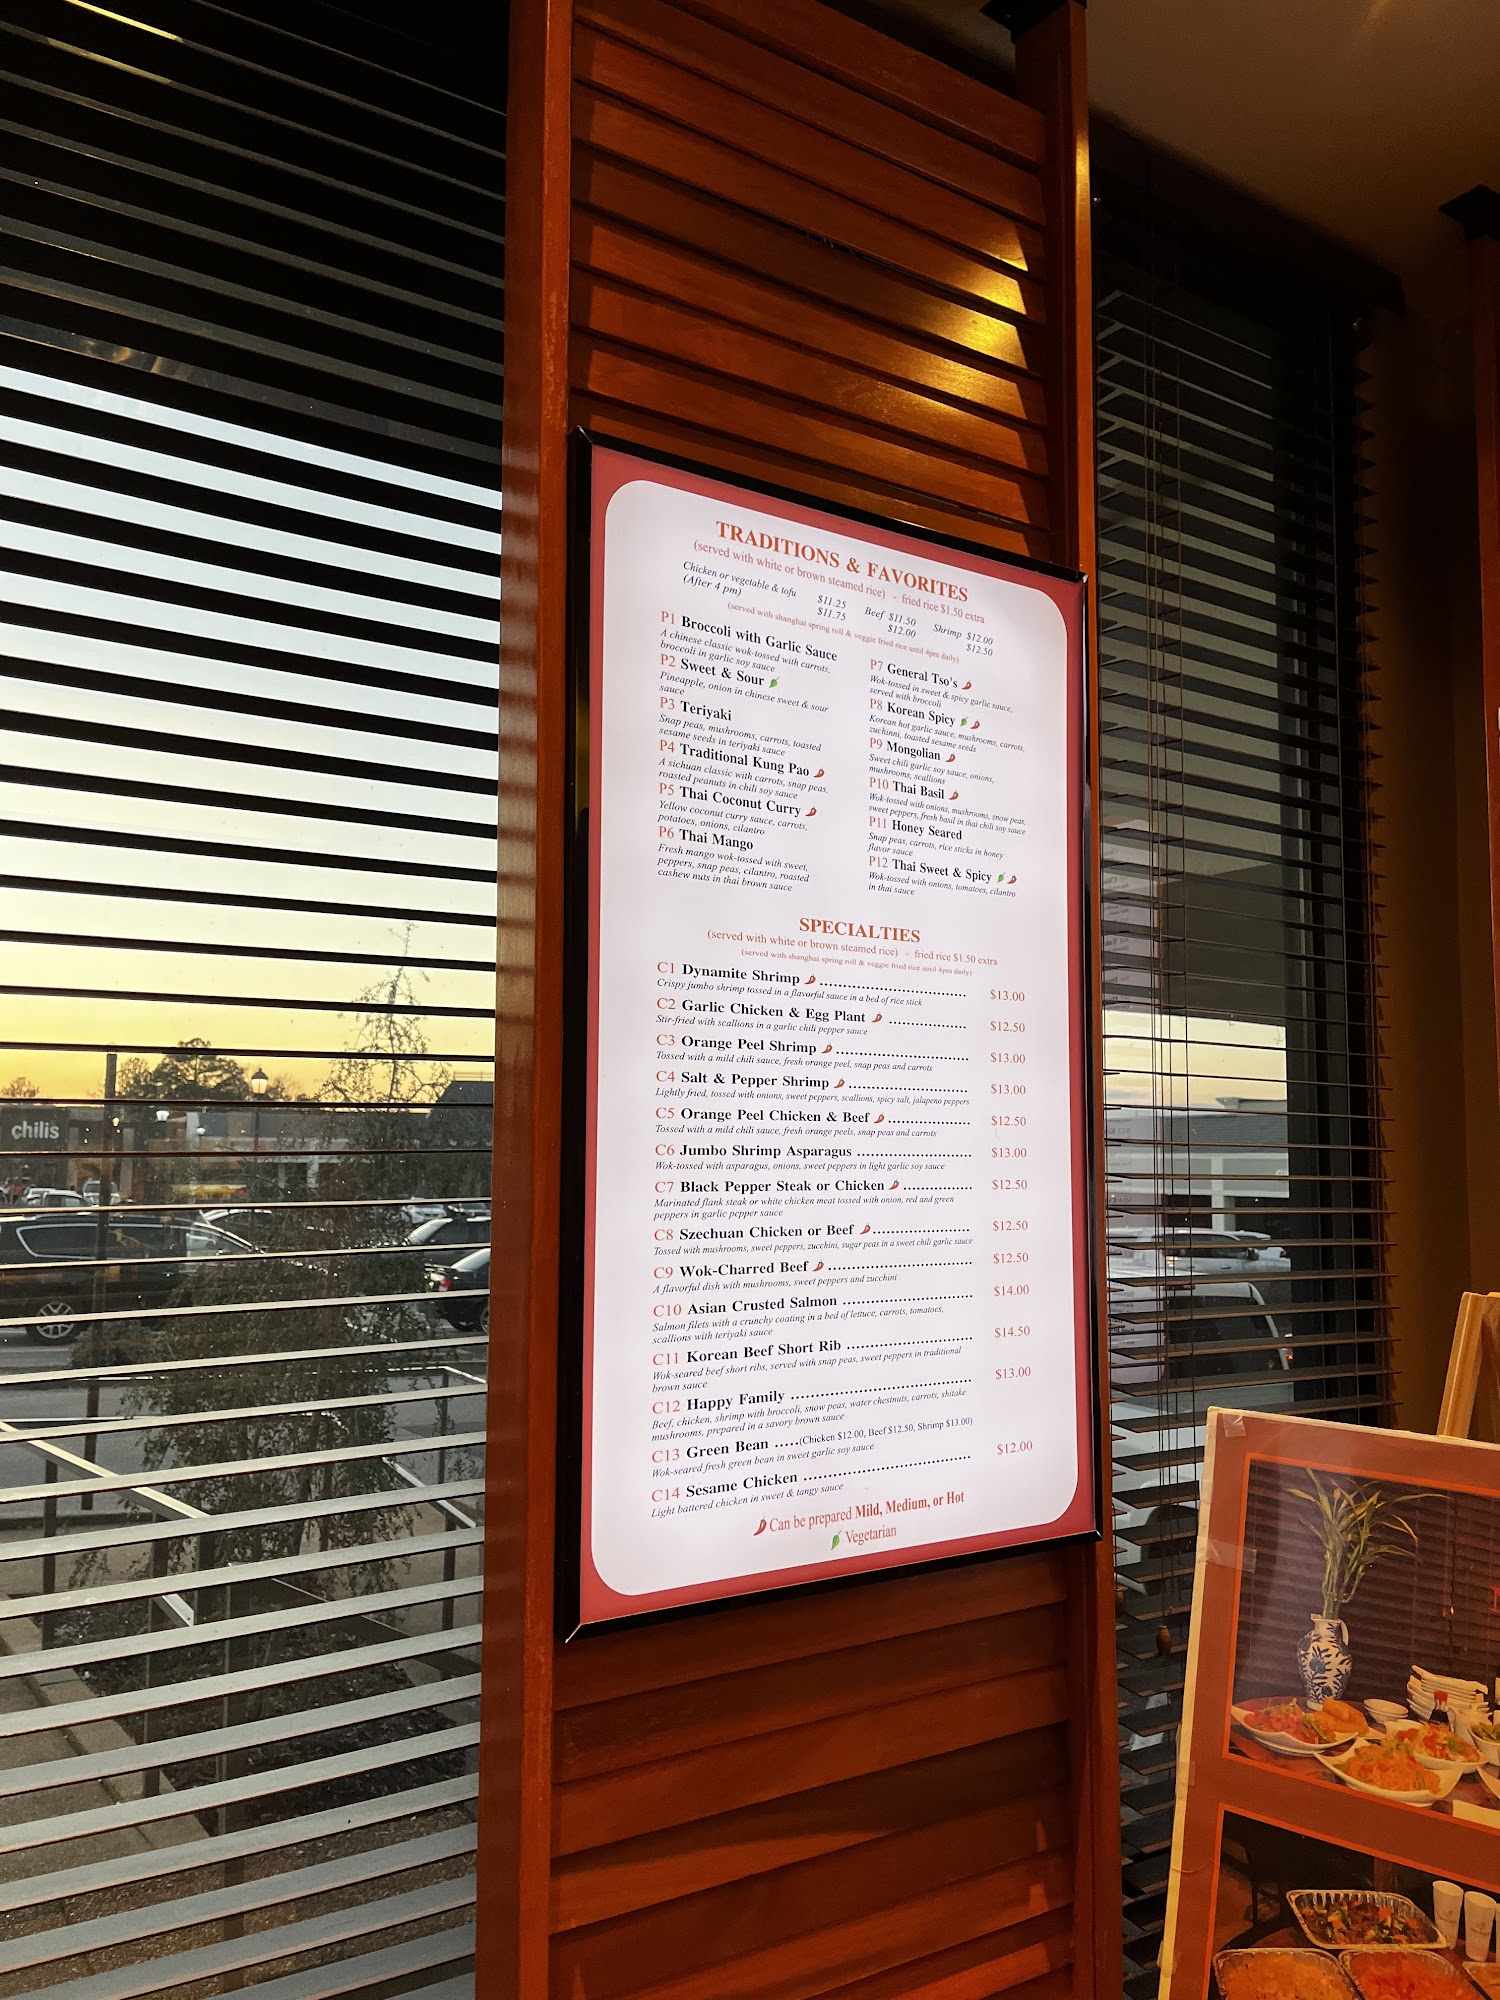 TRADITIONS & FAVORITES
(served with white or brown steamed rice) - fried rice $1.50 extra
Chicken or vegetable & tofu $11.25 Beef $11.50 Shrimp $12.00
(After 4 pm) $11.75 $12.00 $12.50
(served with shanghai spring roll & veggie fried rice until 4pm daily)
P1 Broccoli with Garlic Sauce
A chinese classic wok-tossed with carrots,
broccoli in garlic soy sauce
P2 Sweet & Sour
Pineapple, onion in chinese sweet & sour
sauce
P3 Teriyaki
Snap peas, mushrooms, carrots, toasted
sesame seeds in teriyaki sauce
P4 Traditional Kung Pao
A sichuan classic with carrots, snap peas,
roasted peanuts in chili soy sauce
P5 Thai Coconut Curry
Yellow coconut curry sauce, carrots,
potatoes, onions, cilantro
P6 Thai Mango
Fresh mango wok-tossed with sweet,
peppers, snap peas, cilantro, roasted
cashew nuts in thai brown sauce
P7 General Tso's
Wok-tossed in sweet & spicy garlic sauce,
served with broccoli
P8 Korean Spicy
Korean hot garlic sauce, mushrooms, carrots,
zuchinni, toasted sesame seeds
P9 Mongolian
Sweet chili garlic soy sauce, onions,
mushrooms, scallions
P10 Thai Basil
Wok-tossed with onions, mushrooms, snow peas,
sweet peppers, fresh basil in thai chili soy sauce
P11 Honey Seared
Snap peas, carrots, rice sticks in honey
flavor sauce
P12 Thai Sweet & Spicy
Wok-tossed with onions, tomatoes, cilantro
in thai sauce
SPECIALTIES
(served with white or brown steamed rice) - fried rice $1.50 extra
(served with shanghai spring roll & veggie fried rice until 4pm daily)
C1 Dynamite Shrimp ................................ $13.00
Crispy jumbo shrimp tossed in a flavorful sauce in a bed of rice stick
C2 Garlic Chicken & Egg Plant ................. $12.50
Stir-fried with scallions in a garlic chili pepper sauce
C3 Orange Peel Shrimp ............................. $13.00
Tossed with a mild chili sauce, fresh orange peel, snap peas and carrots
C4 Salt & Pepper Shrimp .......................... $13.00
Lightly fried, tossed with onions, sweet peppers, scallions, spicy salt, jalapeno peppers
C5 Orange Peel Chicken & Beef .................. $12.50
Tossed with a mild chili sauce, fresh orange peels, snap peas and carrots
C6 Jumbo Shrimp Asparagus ......................... $13.00
Wok-tossed with asparagus, onions, sweet peppers in light garlic soy sauce
C7 Black Pepper Steak or Chicken ............... $12.50
Marinated flank steak or white chicken meat tossed with onion, red and green
peppers in garlic pepper sauce
C8 Szechuan Chicken or Beef ..................... $12.50
Tossed with mushrooms, sweet peppers, zucchini, sugar peas in a sweet chili garlic sauce
C9 Wok-Charred Beef ............................... $12.50
A flavorful dish with mushrooms, sweet peppers and zucchini
C10 Asian Crusted Salmon ............................ $14.00
Salmon filets with a crunchy coating in a bed of lettuce, carrots, tomatoes,
scallions with teriyaki sauce
C11 Korean Beef Short Rib ........................... $14.50
Wok-seared beef short ribs, served with snap peas, sweet peppers in traditional
brown sauce
C12 Happy Family ....................................... $13.00
Beef, chicken, shrimp with broccoli, snow peas, water chestnuts, carrots, shitake
mushrooms, prepared in a savory brown sauce
C13 Green Bean .....(Chicken $12.00, Beef $12.50, Shrimp $13.00)
Wok-seared fresh green bean in sweet garlic soy sauce
C14 Sesame Chicken .................................. $12.00
Light battered chicken in sweet & tangy sauce
Can be prepared Mild, Medium, or Hot
Vegetarian
chilis